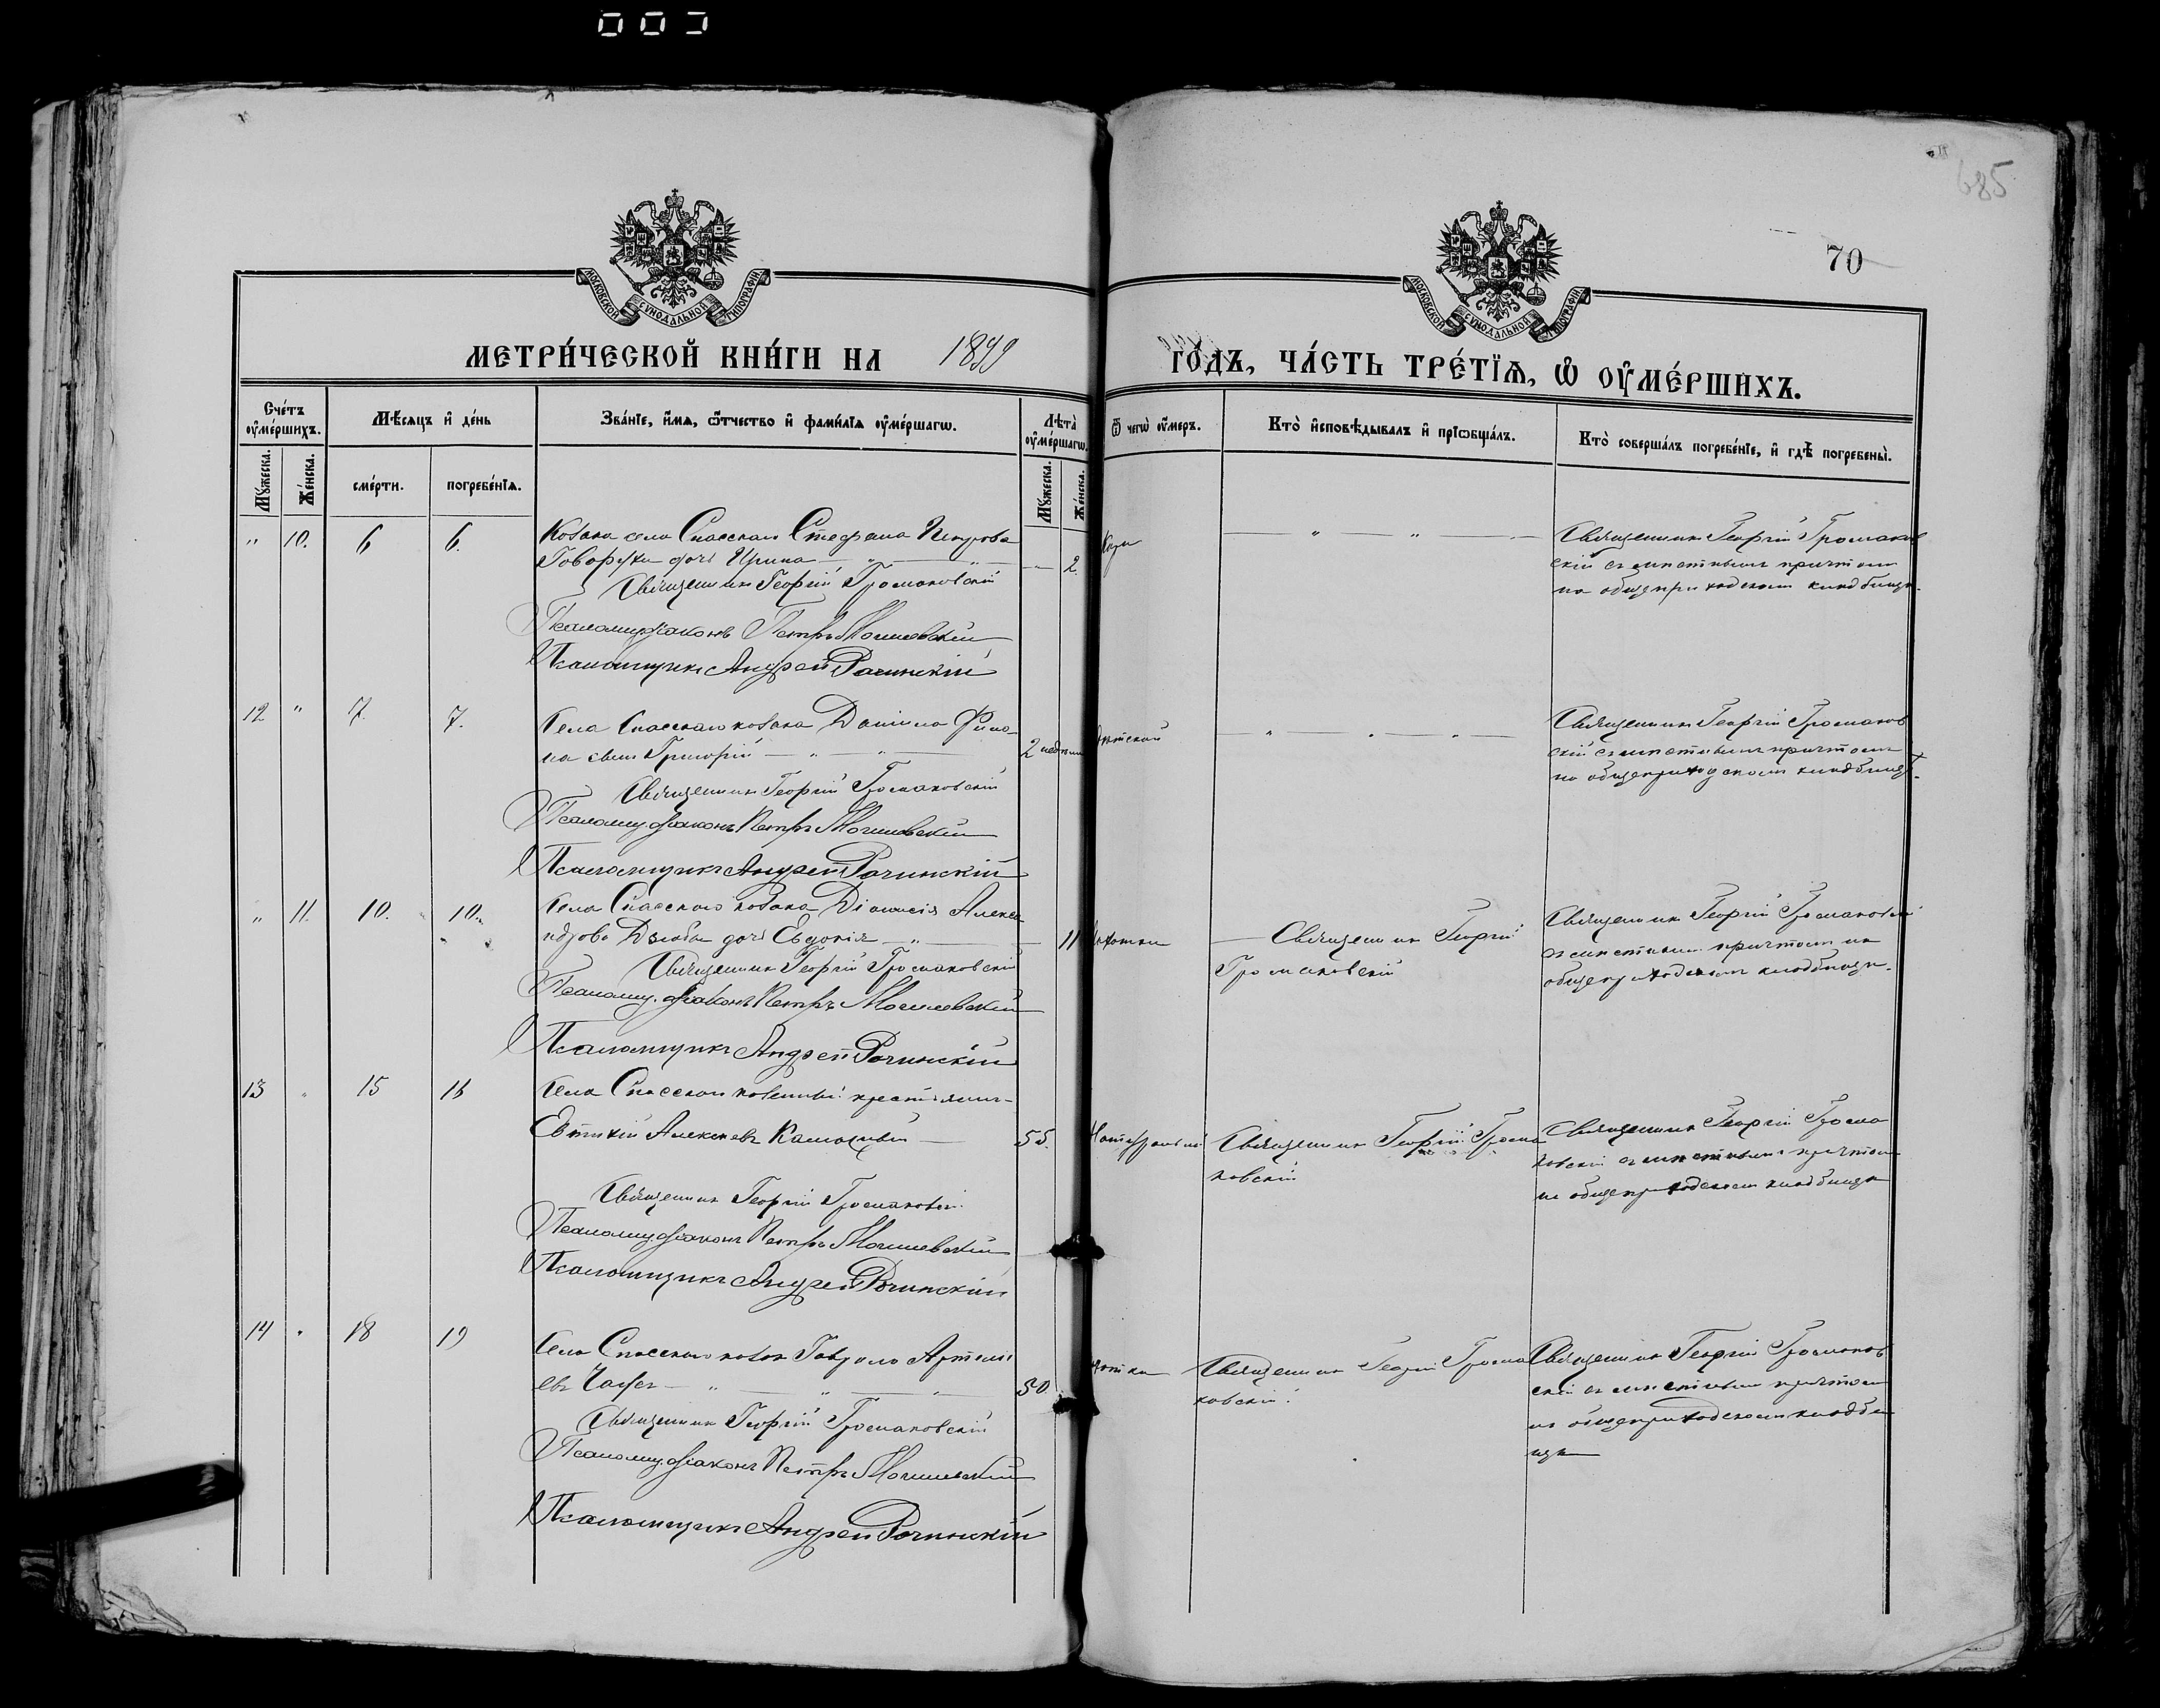 685
70
МОСКОВСКОЙ СУНОДАЛЬНОЙ ТИПОГРАФІИ
МОСКОВСКОЙ СУНОДАЛЬНОЙ ТИПОГРАФІИ
МЕТРИ́ЧЕСКОЙ КНИ́ГИ НА 1899 ГО́ДЪ, ЧА́СТЬ ТРЕ́ТІѦ, Ѡ ОУ҆МЕ́РШИХЪ.
Сче́тъ оу҆ме́ршихъ.
Мѣ́сяцъ и҆ де́нь
Зва́нїе, и҆́мѧ, ѻ҆́тчество и҆ фами́лїѧ оу҆ме́ршагѡ.
Лѣ́та оу҆ме́ршагѡ.
Ѿ чегѡ̀ оу҆́меръ.
Кто̀ и҆сповѣ́дывалъ и҆ прїѡбща́лъ.
Кто̀ соверша́лъ погребе́нїе, и҆ гдѣ̀ погребены̀.
Мꙋ́жеска.
Же́нска.
сме́рти.
погребе́нїѧ.
Мꙋ́жеска.
Же́нска.
" 10. 6 6. Козака села Спасскаго Стефана Петрова
дочь Ирина 2.
Священникъ Георгій Громаковскій
Псаломщ. діаконъ Петръ Могилевскій
Псаломщикъ Андрей Рачинскій
Священникъ Георгій Громаков
скій съ мѣстнымъ причтомъ
на общеприходскомъ кладбищѣ.
12 " 7. 7. Села Спасскаго козака Даніила
сынъ Григорій 2 недѣли
Священникъ Георгій Громаковскій
Псаломщ. діаконъ Петръ Могилевскій
Псаломщикъ Андрей Рачинскій
Священникъ Георгій Громаков
скій съ мѣстнымъ причтомъ
на общеприходскомъ кладбищѣ.
" 11. 10. 10. Села Спасскаго козака Діонисія Алекса
ндрова Дзюбы дочь Евдокія 11
Священникъ Георгій Громаковскій
Псаломщ. діаконъ Петръ Могилевскій
Псаломщикъ Андрей Рачинскій
Священникъ Георгій
Громаковскій
Священникъ Георгій Громаковскій
съ мѣстнымъ причтомъ на
общеприходскомъ кладбищѣ.
13 " 15 16 Села Спасскаго казенный крестьянинъ
Евтихій Алексѣевъ 55.
Священникъ Георгій Громаковскій
Псаломщ. діаконъ Петръ Могилевскій
Псаломщикъ Андрей Рачинскій
Священникъ Георгій Грома
ковскій
Священникъ Георгій Грома
ковскій съ мѣстнымъ причтомъ
на общеприходскомъ кладбищѣ
14 " 18 19 Села Спасскаго козакъ Гавріилъ
50.
Священникъ Георгій Громаковскій
Псаломщ. діаконъ Петръ Могилевскій
Псаломщикъ Андрей Рачинскій
Священникъ Георгій Грома
ковскій.
Священникъ Георгій Громаков
скій съ мѣстнымъ причтомъ
на общеприходскомъ кладби
щѣ